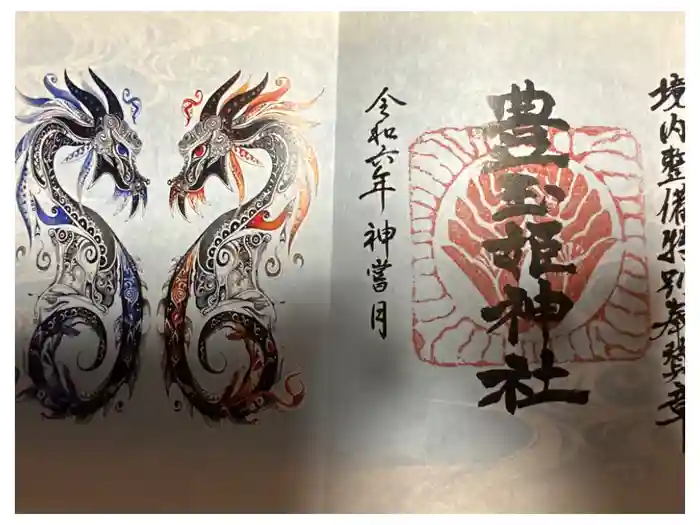 境内整備特別奉賛章
豊玉姫神社
令和六年神嘗月